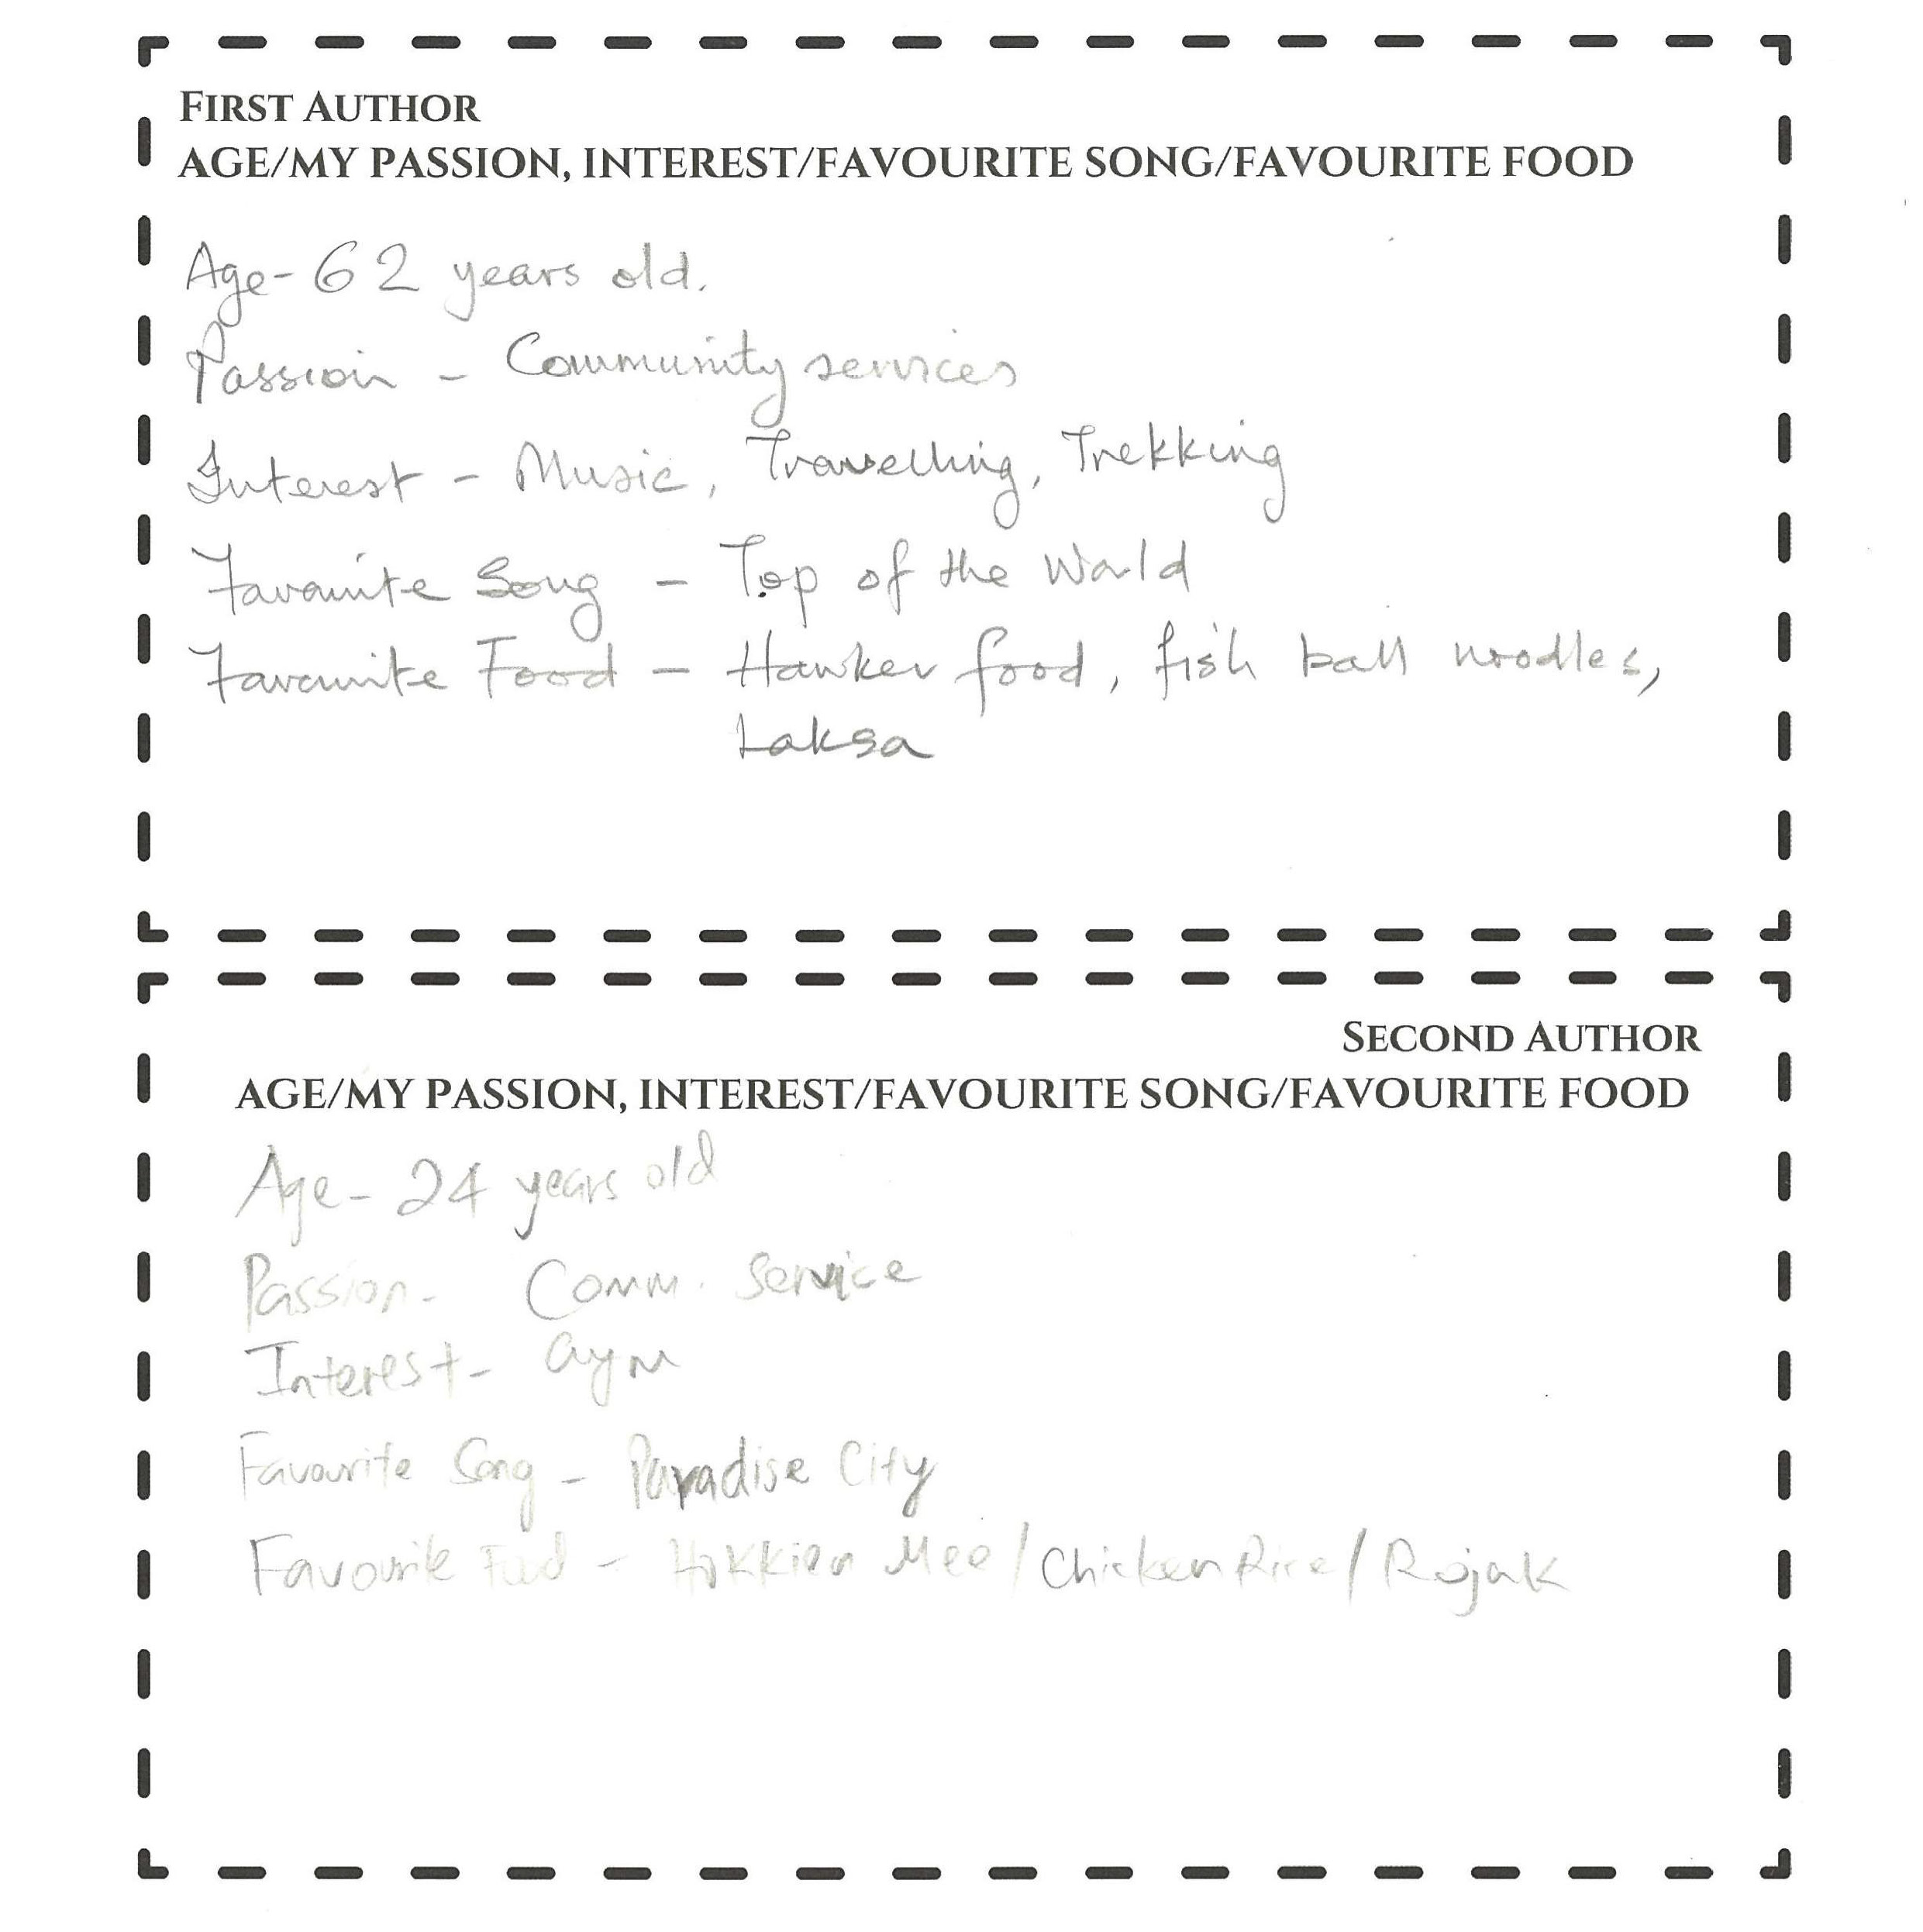 FIRST AUTHOR
AGE/MY PASSION, INTEREST/FAVOURITE SONG/FAVOURITE FOOD
Age- 62 years old.
Passion - Community services
Interest - Music, Travelling, Trekking
Favourite Song - Top of the World
Favourite Food - Hawker food, fish ball noodles,
Laksa
SECOND AUTHOR
AGE/MY PASSION, INTEREST/FAVOURITE SONG/FAVOURITE FOOD
Age- 24 years old
Passion- Comm. Service
Interest- Gym
Favourite Song - Paradise City
Favourite Food - Hokkien Mee/Chicken Rice/Rojak